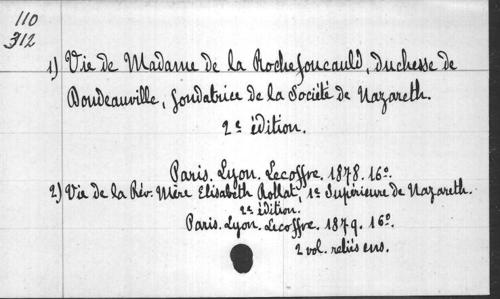 110
312
1) Vie de Madame de la Rochefoucauld, duchesse de
Doudeauville, fondatrice de la Société de Nazareth.
2e édition.
Paris. Lyon. Lecoffre. 1878. 16o.
2) Vie de la Rév. Mère Elisabeth Rollat, 1e Supérieure de Nazareth.
2e édition.
Paris. Lyon. Lecoffre. 1879. 16o.
2 vol. reliés ens.